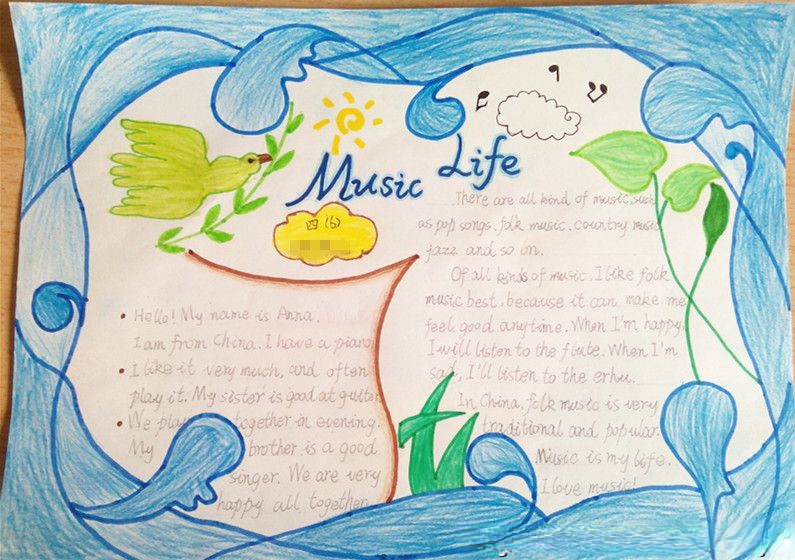 Music Life
四(6)
Hello! My name is Anna.
I am from China. I have a piano
I like it very much, and often
play it. My sister is good at guitar
We play together in evening.
My brother is a good
singer. We are very
happy all together.
There are all kind of music, such
as pop songs. folk music. country music
jazz and so on.
Of all kinds of music. I like folk
music best. because it can make me
feel good anytime. When I'm happy,
I will listen to the flute. When I'm
sad, I'll listen to the erhu.
In China, folk music is very
traditional and popular.
Music is my life.
I love music!